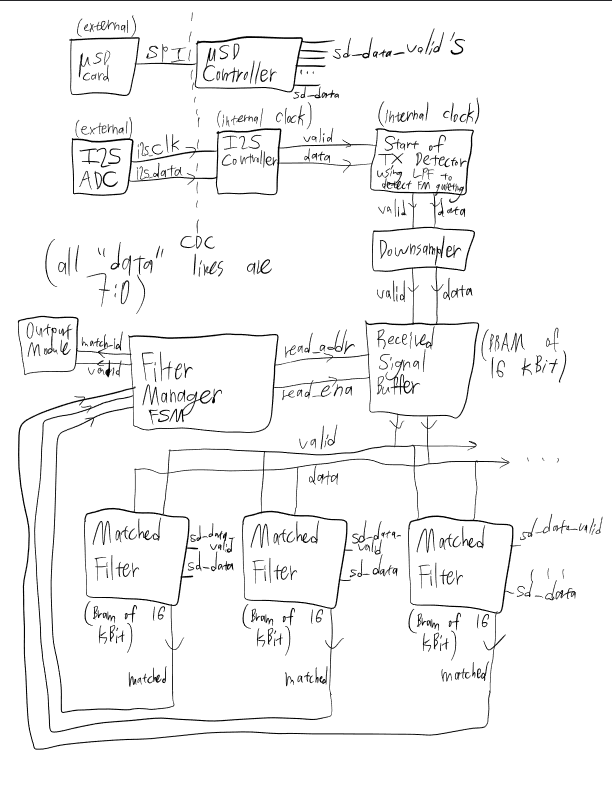 (external)
μSD
card
SPI
μSD
Controller
sd_data_valid's
...
sd_data
(external)
I2S
ADC
i2s_clk
i2s_data
(internal clock)
I2S
Controller
valid
data
(internal clock)
Start of
TX Detector
using LPF to
detect FM quieting
valid
data
CDC
(all "data" lines are
7:0)
Downsampler
valid
data
Output
Module
match_id
valid
Filter
Manager
FSM
read_addr
read_ena
Received
Signal
Buffer
(BRAM of
16 kBit)
valid
data
...
Matched
Filter
sd_data_
valid
sd_data
(Bram of 16
kBit)
matched
Matched
Filter
sd_data_
valid
sd_data
(Bram of 16
kBit)
matched
Matched
Filter
sd_data_valid
sd_data
(Bram of 16
kBit)
matched